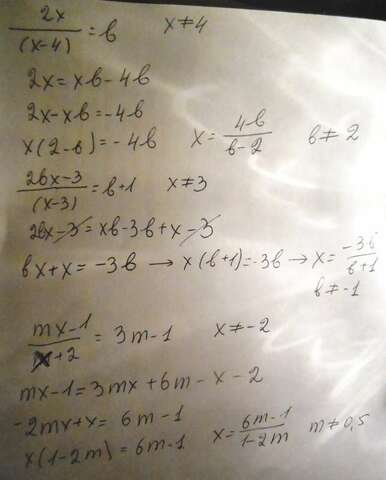 2x/(x-4) = b   x ≠ 4
2x = xb - 4b
2x - xb = -4b
x(2-b) = -4b   x = 4b/(b-2)   b ≠ 2
(2bx-3)/(x-3) = b+1   x ≠ 3
2bx - 3 = xb - 3b + x - 3
bx + x = -3b → x(b+1) = -3b → x = -3b/(b+1)
b ≠ -1
(mx-1)/(x+2) = 3m-1   x ≠ -2
mx - 1 = 3mx + 6m - x - 2
-2mx + x = 6m - 1
x(1-2m) = 6m-1   x = (6m-1)/(1-2m)   m ≠ 0,5